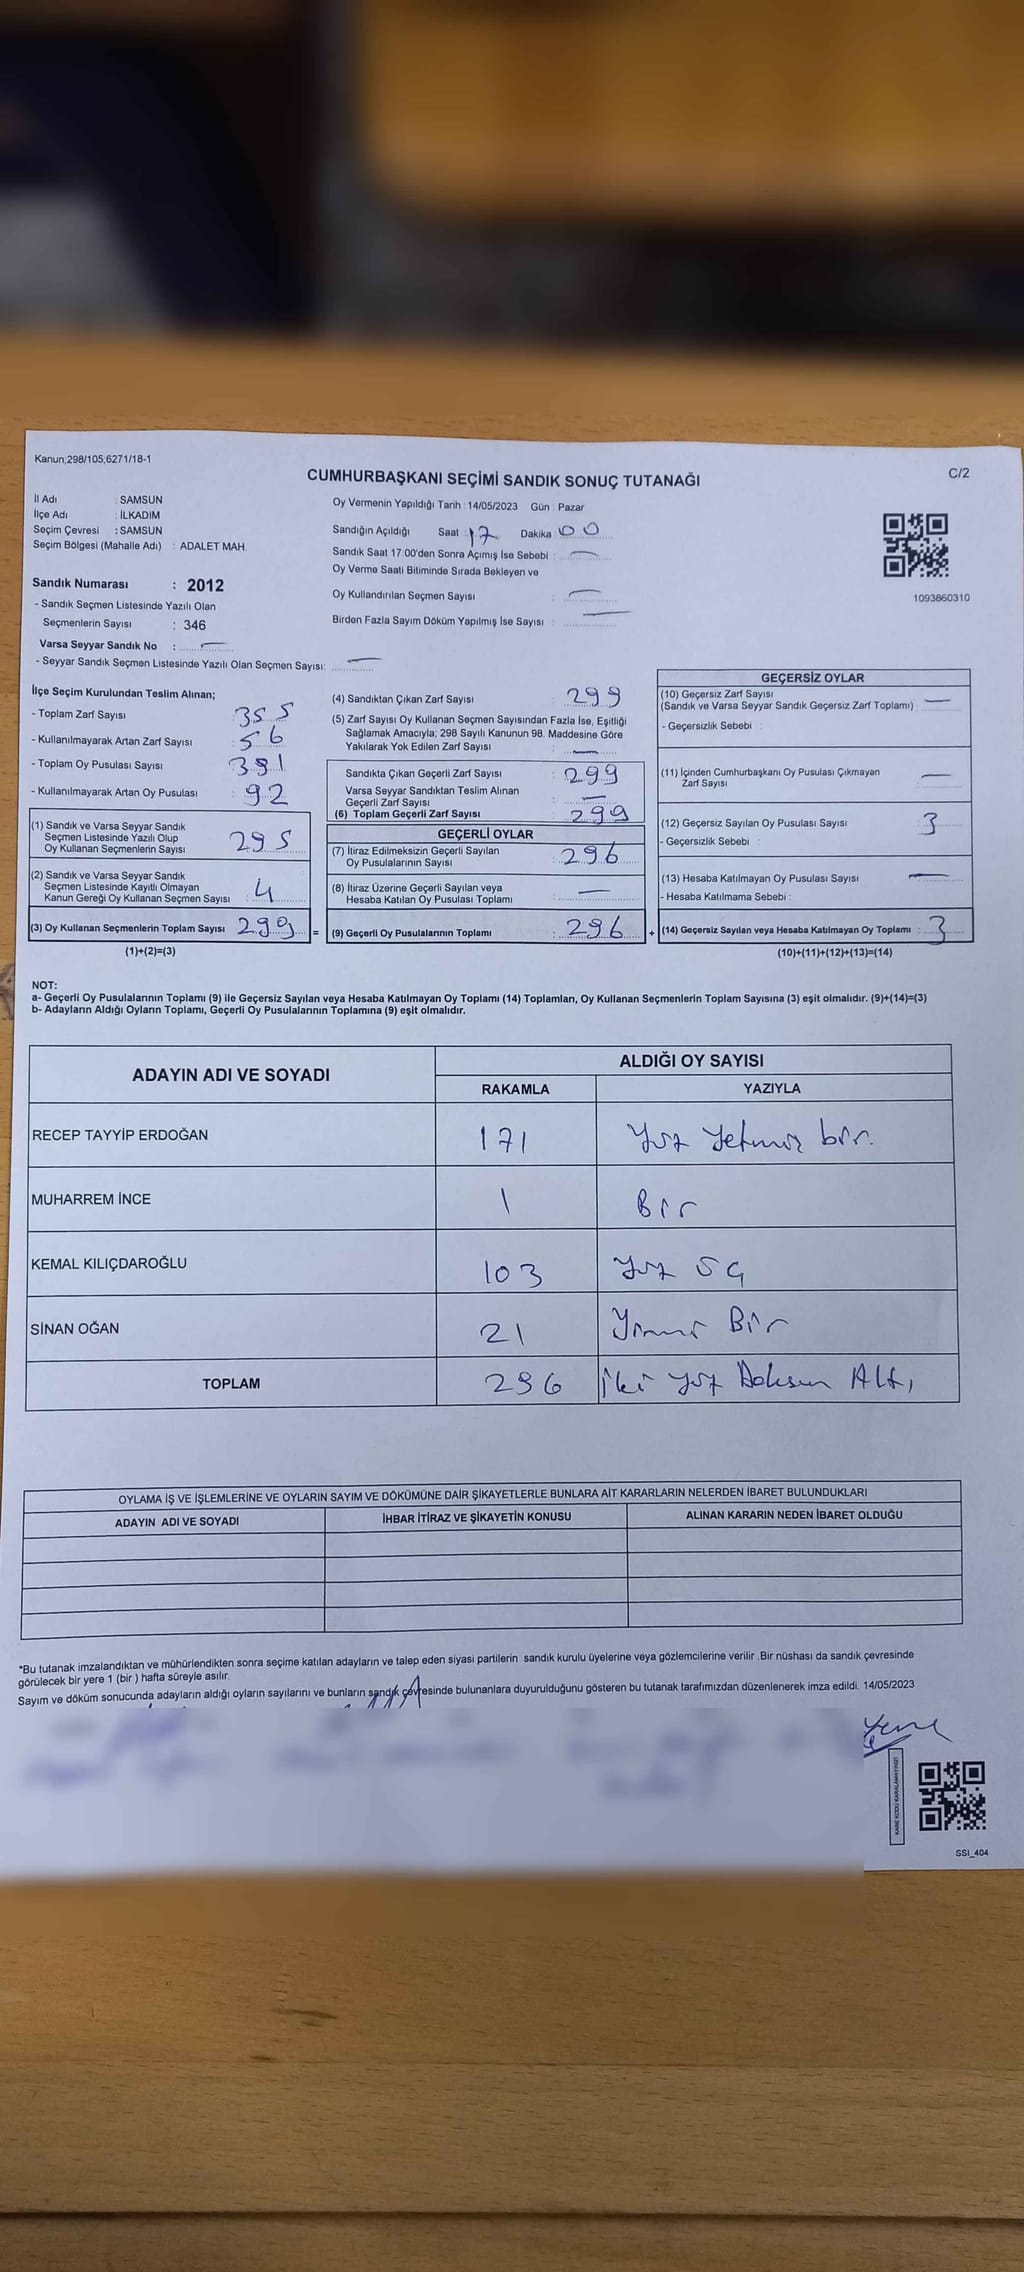 Kanun;298/105;6271/18-1
C/2
CUMHURBAŞKANI SEÇİMİ SANDIK SONUÇ TUTANAĞI
İl Adı : SAMSUN
İlçe Adı : İLKADIM
Seçim Çevresi : SAMSUN
Seçim Bölgesi (Mahalle Adı) : ADALET MAH.
Sandık Numarası : 2012
- Sandık Seçmen Listesinde Yazılı Olan
Seçmenlerin Sayısı : 346
Varsa Seyyar Sandık No : —
- Seyyar Sandık Seçmen Listesinde Yazılı Olan Seçmen Sayısı: —
Oy Vermenin Yapıldığı Tarih : 14/05/2023 Gün : Pazar
Sandığın Açıldığı Saat : 17 Dakika : 00
Sandık Saat 17:00'den Sonra Açımış İse Sebebi : —
Oy Verme Saati Bitiminde Sırada Bekleyen ve
Oy Kullandırılan Seçmen Sayısı : —
Birden Fazla Sayım Döküm Yapılmış İse Sayısı : —
1093860310
İlçe Seçim Kurulundan Teslim Alınan;
- Toplam Zarf Sayısı : 355
- Kullanılmayarak Artan Zarf Sayısı : 56
- Toplam Oy Pusulası Sayısı : 391
- Kullanılmayarak Artan Oy Pusulası : 92
(1) Sandık ve Varsa Seyyar Sandık
Seçmen Listesinde Yazılı Olup
Oy Kullanan Seçmenlerin Sayısı : 295
(2) Sandık ve Varsa Seyyar Sandık
Seçmen Listesinde Kayıtlı Olmayan
Kanun Gereği Oy Kullanan Seçmen Sayısı : 4
(3) Oy Kullanan Seçmenlerin Toplam Sayısı : 299 =
(1)+(2)=(3)
(4) Sandıktan Çıkan Zarf Sayısı : 299
(5) Zarf Sayısı Oy Kullanan Seçmen Sayısından Fazla İse, Eşitliği
Sağlamak Amacıyla, 298 Sayılı Kanunun 98. Maddesine Göre
Yakılarak Yok Edilen Zarf Sayısı : —
Sandıkta Çıkan Geçerli Zarf Sayısı : 299
Varsa Seyyar Sandıktan Teslim Alınan
Geçerli Zarf Sayısı : —
(6) Toplam Geçerli Zarf Sayısı : 299
GEÇERLİ OYLAR
(7) İtiraz Edilmeksizin Geçerli Sayılan
Oy Pusulalarının Sayısı : 296
(8) İtiraz Üzerine Geçerli Sayılan veya
Hesaba Katılan Oy Pusulası Toplamı : —
(9) Geçerli Oy Pusulalarının Toplamı : 296 +
GEÇERSİZ OYLAR
(10) Geçersiz Zarf Sayısı
(Sandık ve Varsa Seyyar Sandık Geçersiz Zarf Toplamı) : —
- Geçersizlik Sebebi :
(11) İçinden Cumhurbaşkanı Oy Pusulası Çıkmayan
Zarf Sayısı : —
(12) Geçersiz Sayılan Oy Pusulası Sayısı : 3
- Geçersizlik Sebebi :
(13) Hesaba Katılmayan Oy Pusulası Sayısı : —
- Hesaba Katılmama Sebebi :
(14) Geçersiz Sayılan veya Hesaba Katılmayan Oy Toplamı : 3
(10)+(11)+(12)+(13)=(14)
NOT:
a- Geçerli Oy Pusulalarının Toplamı (9) ile Geçersiz Sayılan veya Hesaba Katılmayan Oy Toplamı (14) Toplamları, Oy Kullanan Seçmenlerin Toplam Sayısına (3) eşit olmalıdır. (9)+(14)=(3)
b- Adayların Aldığı Oyların Toplamı, Geçerli Oy Pusulalarının Toplamına (9) eşit olmalıdır.
ADAYIN ADI VE SOYADI
ALDIĞI OY SAYISI
RAKAMLA YAZIYLA
RECEP TAYYİP ERDOĞAN 171 Yüz Yetmiş bir.
MUHARREM İNCE 1 Bir
KEMAL KILIÇDAROĞLU 103 Yüz Üç
SİNAN OĞAN 21 Yirmi Bir
TOPLAM 296 İki yüz Doksan Altı
OYLAMA İŞ VE İŞLEMLERİNE VE OYLARIN SAYIM VE DÖKÜMÜNE DAİR ŞİKAYETLERLE BUNLARA AİT KARARLARIN NELERDEN İBARET BULUNDUKLARI
ADAYIN ADI VE SOYADI İHBAR İTİRAZ VE ŞİKAYETİN KONUSU ALINAN KARARIN NEDEN İBARET OLDUĞU
*Bu tutanak imzalandıktan ve mühürlendikten sonra seçime katılan adayların ve talep eden siyasi partilerin sandık kurulu üyelerine veya gözlemcilerine verilir. Bir nüshası da sandık çevresinde
görülecek bir yere 1 (bir ) hafta süreyle asılır.
Sayım ve döküm sonucunda adayların aldığı oyların sayılarını ve bunların sandık çevresinde bulunanlara duyurulduğunu gösteren bu tutanak tarafımızdan düzenlenerek imza edildi. 14/05/2023
KARE KODU KARALAMAYINIZ!
SSI_404